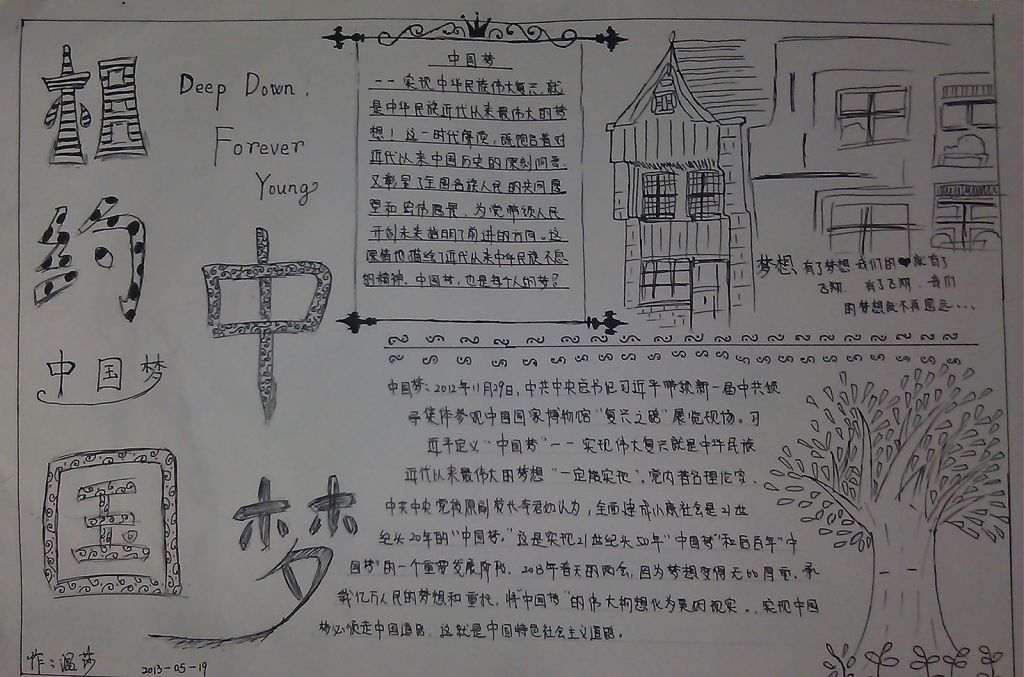 相约
中国梦
Deep Down,
Forever
Young
中
国
梦
中国梦
——实现中华民族伟大复兴,就
是中华民族近代以来最伟大的梦
想!这一时代解读,既饱含着对
近代以来中国历史的深刻洞悉,
又彰显了全国各族人民的共同愿
望和宏伟愿景,为党带领人民
开创未来指明了前进的方向。这
深情也描绘了近代以来中华民族不息
的精神。中国梦,也是每个人的梦?
梦想 有了梦想 我们的❤就有了
飞翔 有了飞翔 我们
的梦想就不再遥远...
中国梦:2012年11月29日,中共中央总书记习近平带领新一届中共领
导集体参观中国国家博物馆“复兴之路”展览现场。习
近平定义“中国梦”——实现伟大复兴就是中华民族
近代以来最伟大的梦想“一定能实现”。党内著名理论家、
中共中央党校原副校长李君如认为,全面建成小康社会是21世
纪头20年的“中国梦。”这是实现21世纪头50年“中国梦”和后百年“中
国梦”的一个重要发展阶段。2013年春天的两会,因为梦想变得无比厚重,承
载亿万人民的梦想和重托,将“中国梦”的伟大构想化为美好现实。实现中国
梦必须走中国道路,这就是中国特色社会主义道路。
作:温莎
2013-05-19